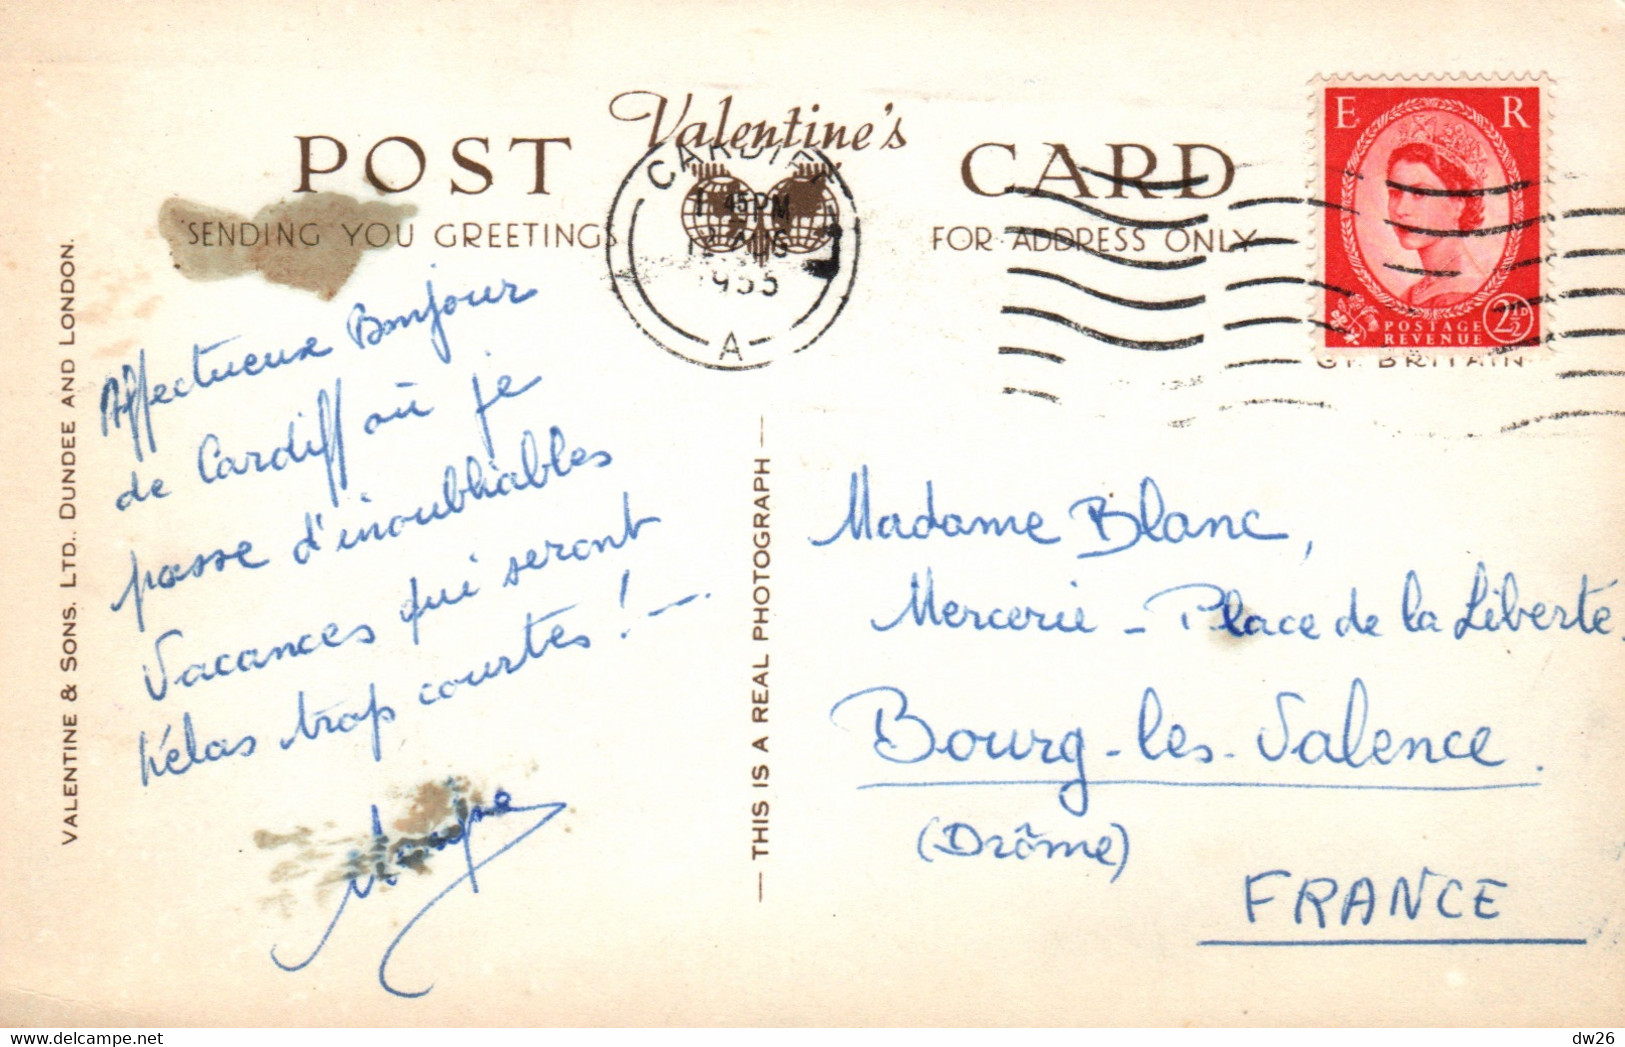 Valentine's
POST CARD
SENDING YOU GREETINGS
FOR ADDRESS ONLY
CARDIFF
45 PM
AUG
A
E R
POSTAGE
REVENUE
2½D
GT. BRITAIN
VALENTINE & SONS. LTD. DUNDEE AND LONDON.
THIS IS A REAL PHOTOGRAPH
Affectueux Bonjour
de Cardiff où je
passe d'inoubliables
Vacances qui seront
hélas trop courtes! —
Madame Blanc,
Mercerie - Place de la Liberté.
Bourg-les-Valence.
(Drôme)
FRANCE
dw26